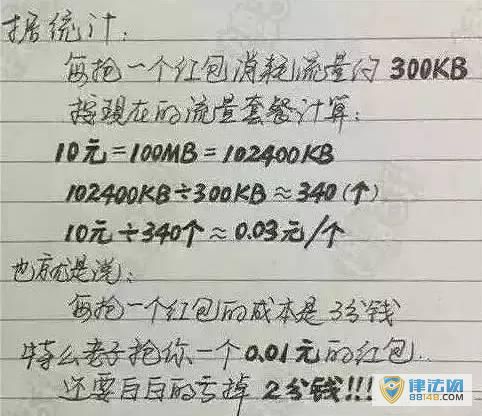 据统计:
每抢一个红包消耗流量约 300KB
按现在的流量套餐计算:
10元=100MB=102400KB
102400KB÷300KB≈340(个)
10元÷340个≈0.03元/个
也就是说:
每抢一个红包的成本是3分钱
特么老子抢你一个0.01元的红包..
还要白白的亏掉 2分钱!!!
律法网
88148.com